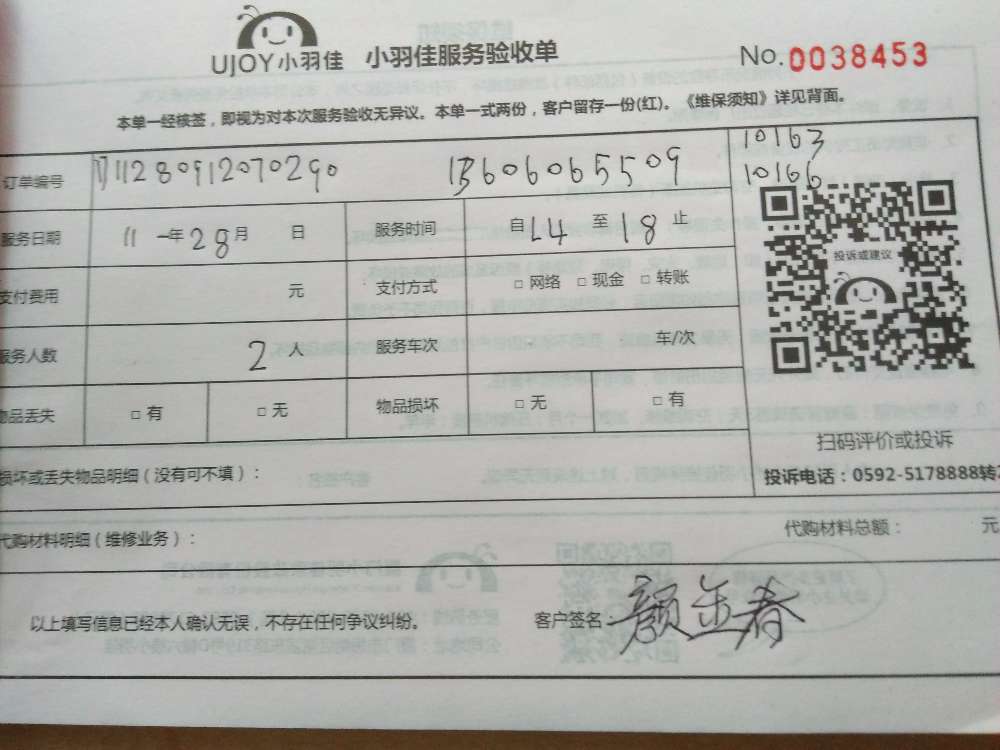 UJOY小羽佳 小羽佳服务验收单 No.0038453
本单一经核签，即视为对本次服务验收无异议。本单一式两份，客户留存一份(红)。《维保须知》详见背面。
订单编号 11280912070290 1B606065509 10163
10166
服务日期 11 年 28 月 日 服务时间 自 14 至 18 止
支付费用 元 支付方式 □ 网络 □ 现金 □ 转账
服务人数 2 人 服务车次 车/次
物品丢失 □ 有 □ 无 物品损坏 □ 无 □ 有
投诉或建议
扫码评价或投诉
损坏或丢失物品明细（没有可不填）：
投诉电话：0592-5178888转2
代购材料明细（维修业务）： 代购材料总额： 元
以上填写信息已经本人确认无误，不存在任何争议纠纷。 客户签名： 颜金春